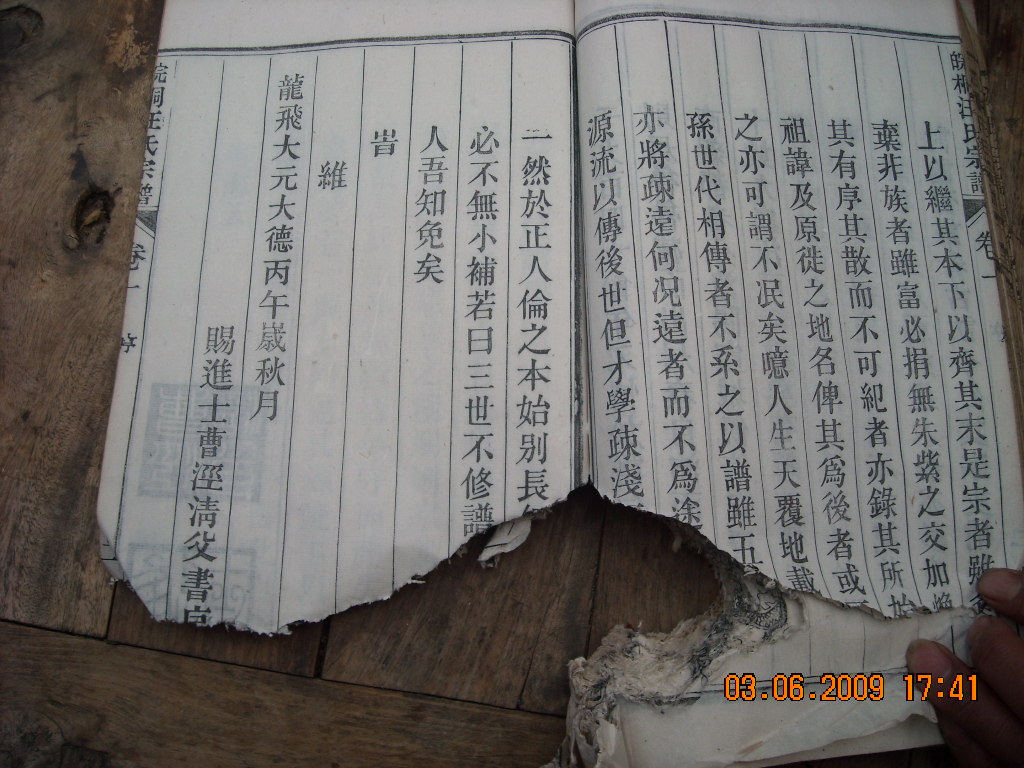 上以繼其本下以齊其末是宗者雖
棄非族者雖富必捐無朱紫之交加
其有序其散而不可紀者亦錄其所始
祖諱及原徙之地名俾其爲後者或
之亦可謂不泯矣噫人生天覆地載
孫世代相傳者不系之以譜雖五
亦將疎遠何况遠者而不爲途
源流以傳後世但才學疎淺
一然於正人倫之本始别長
必不無小補若曰三世不修譜
人吾知免矣
旹
維
龍飛大元大德丙午嵗秋月
賜進士曹涇清父書
皖桐汪氏宗譜
卷一
序
皖桐汪氏宗譜
卷一
03.06.2009 17:41